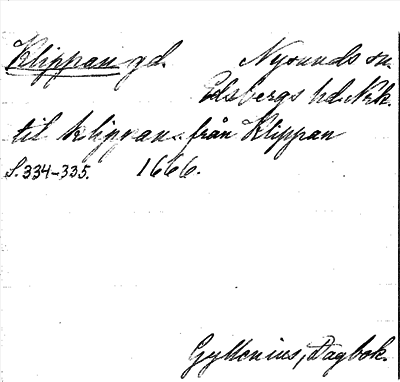 Klippan gd. Nysunds sn.
Edsbergs hd. Nrk.
till Klippan, från Klippan
S. 334-335. 1666.
Gyllenius, Dagbok.